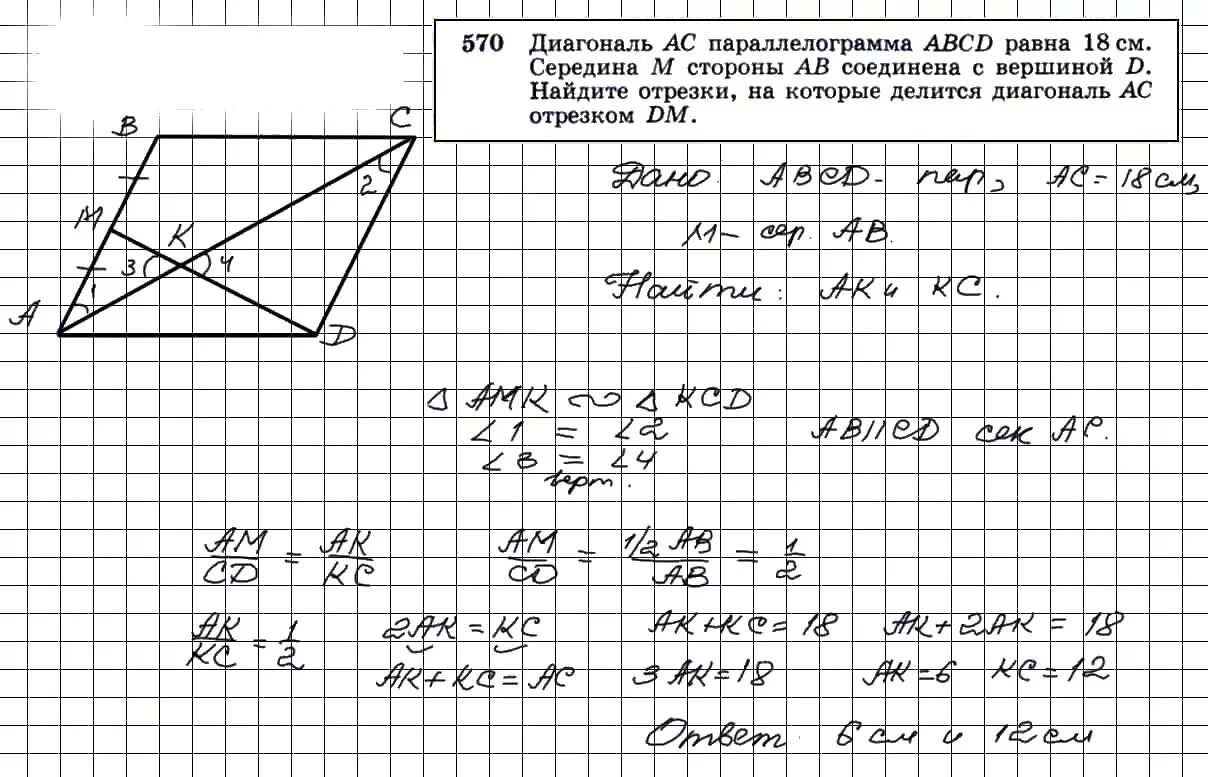 570 Диагональ AC параллелограмма ABCD равна 18 см.
Середина M стороны AB соединена с вершиной D.
Найдите отрезки, на которые делится диагональ AC
отрезком DM.
B C
2
M K
3 4
1
A D
Дано: ABCD - пар, AC = 18 см,
M - сер. AB.
Найти: AK и KC.
Δ AMK ∾ Δ KCD
∠1 = ∠2 AB || CD сек AC.
∠3 = ∠4
верт.
AM/CD = AK/KC AM/CD = 1/2 AB/AB = 1/2
AK/KC = 1/2 2AK = KC AK + KC = 18 AK + 2AK = 18
AK + KC = AC 3 AK = 18 AK = 6 KC = 12
Ответ: 6 см и 12 см